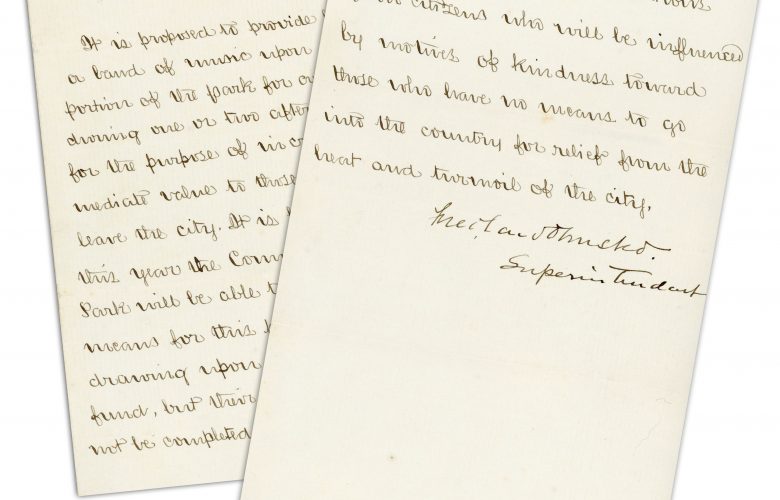 It is proposed to provide
a band of music upon
portion of the park for
during one or two after
for the purpose of in
mediate value to those
leave the city. It is
this year the Com
Park will be able t
means for this
drawing upon
fund, but their
not be completed
citizens who will be influenced
by motives of kindness toward
those who have no means to go
into the country for relief from the
heat and turmoil of the city.
Fred. Law Olmsted.
Superintendent